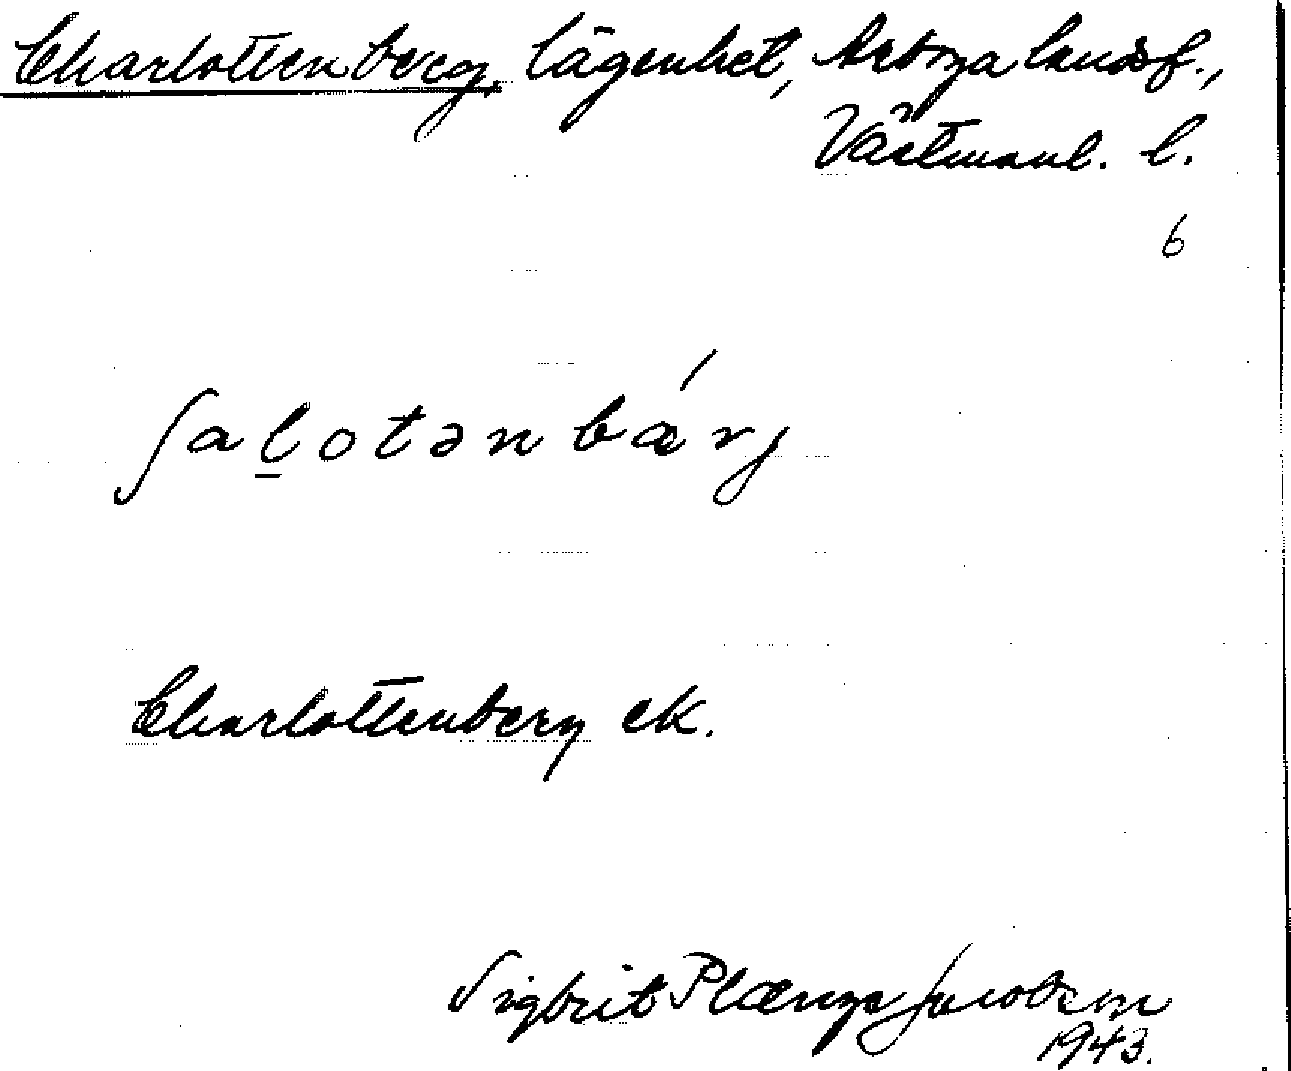 Charlottenberg, lägenhet, Arboga landsf.,
Västmanl. l.
6
ʃaḻotənbǽrj
Charlottenberg ek.
Sigbrit Plænge Jacobson
1943.